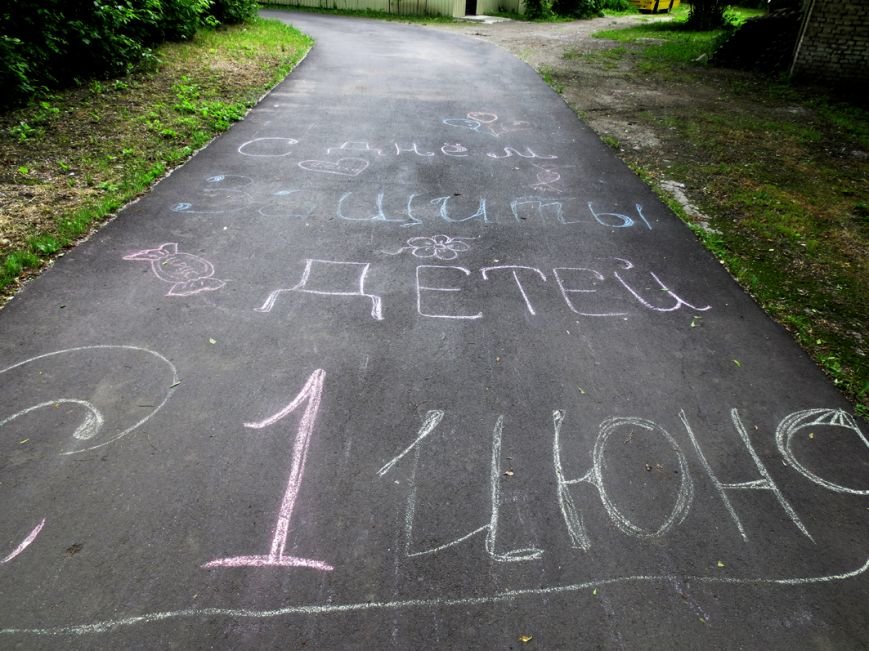 С днём
Защиты
ДЕТЕЙ
1 ИЮНЯ